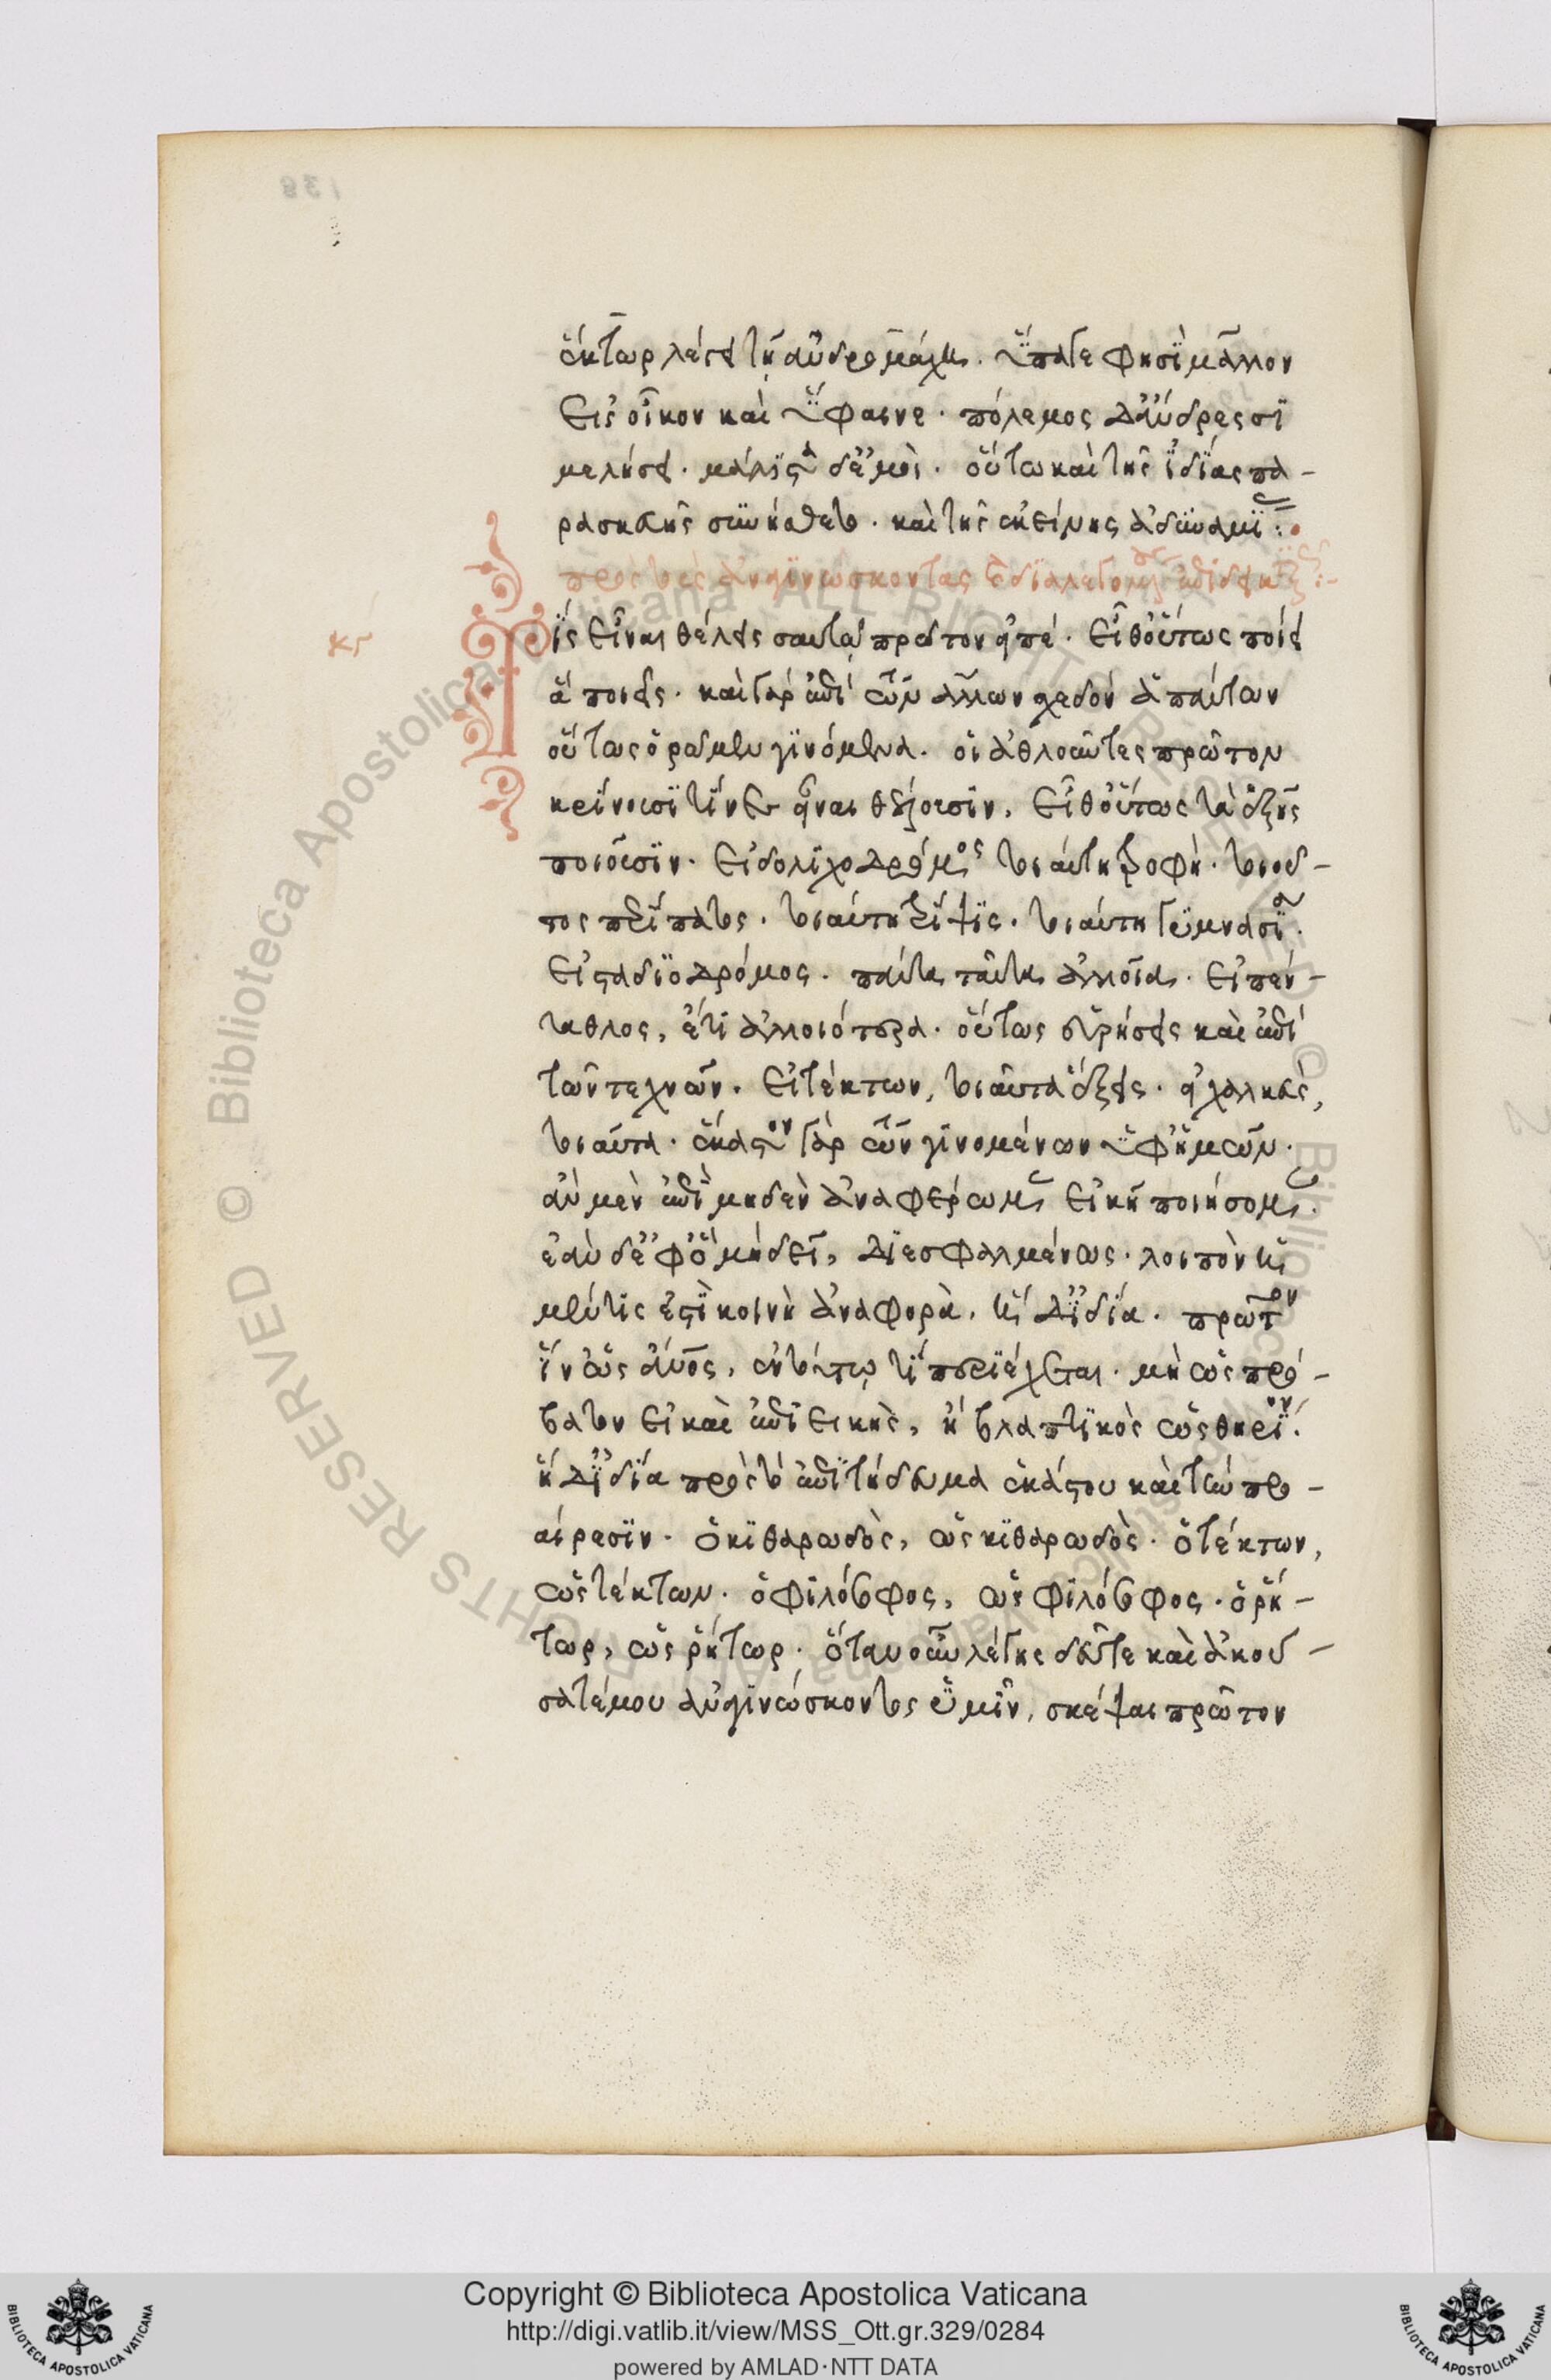 ἕκτωρ λέγει τῆ ἀνδρομάχη. ὕπαγε φησὶ μᾶλλον
εἰς οἶκον καὶ ὕφαινε. πόλεμος δἄνδρεσσι
μελήσει. μάλιστα δἐμοὶ. οὕτω καὶ τῆς ἰδίας πα-
ρασκευῆς συνήσθετο. καὶ τῆς ἐκείνης ἀδυναμίας:
πρὸς τοὺς ἀναγινώσκοντας
Τίς εἶναι θέλεις σαυτῶ πρῶτον εἰπέ. εἶθοὕτως ποίει
ἃ ποιεῖς. καὶ γὰρ ἐπὶ τῶν ἄλλων σχεδὸν ἁπάντων
οὕτως ὁρῶμεν γινόμενα. οἱ ἀθλοῦντες πρῶτον
κρίνουσι τίνες εἶναι θέλουσιν. εἶθοὕτως τὰ ἑξῆς
ποιοῦσιν. εἰ δολιχοδρόμος τοιαύτη τροφὴ. τοιοῦ-
τος περίπατος. τοιαύτη τρίψις. τοιαύτη γυμνασία.
εἰ σταδιοδρόμος. πάντα ταῦτα ἀλλοῖα. εἰ πέν-
ταθλος, ἔτι ἀλλοιότερα. οὕτως εὑρήσεις καὶ ἐπὶ
τῶν τεχνῶν. εἰ τέκτων, τοιαῦτα ἕξεις. εἰ χαλκεὺς,
τοιαῦτα. ἕκαστον γὰρ τῶν γινομένων ὑφἡμῶν.
ἂν μὲν ἐπὶ μηδὲν ἀναφέρωμεν εἰκῆ ποιήσομεν.
ἐὰν δἐφὃ μὴ δεῖ, διεσφαλμένως. λοιπὸν ἡ
μέν τις ἐστὶ κοινὴ ἀναφορὰ, ἡ δἰδία. πρῶτον
ἵνὡς ἄνος, ἐν τούτω τί περιέχεται. μὴ ὡς πρό-
βατον εἰ καὶ ἐπιεικῆς, ἢ βλαπτικὸς ὡς θηρίον.
ἡ δἰδία πρὸς τὸ ἐπιτήδευμα ἑκάστου καὶ τὴν προ-
αίρεσιν. ὁ κιθαρωδὸς, ὡς κιθαρωδὸς. ὁ τέκτων,
ὡς τέκτων. ὁ φιλόσοφος, ὡς φιλόσοφος. ὁ ῥή-
τωρ, ὡς ῥήτωρ. ὅταν οὖν λέγης δεῦτε καὶ ἀκού-
σατέ μου ἀναγινώσκοντος ὑμῖν, σκέψαι πρῶτον
Copyright © Biblioteca Apostolica Vaticana
http://digi.vatlib.it/view/MSS_Ott.gr.329/0284
powered by AMLAD·NTT DATA